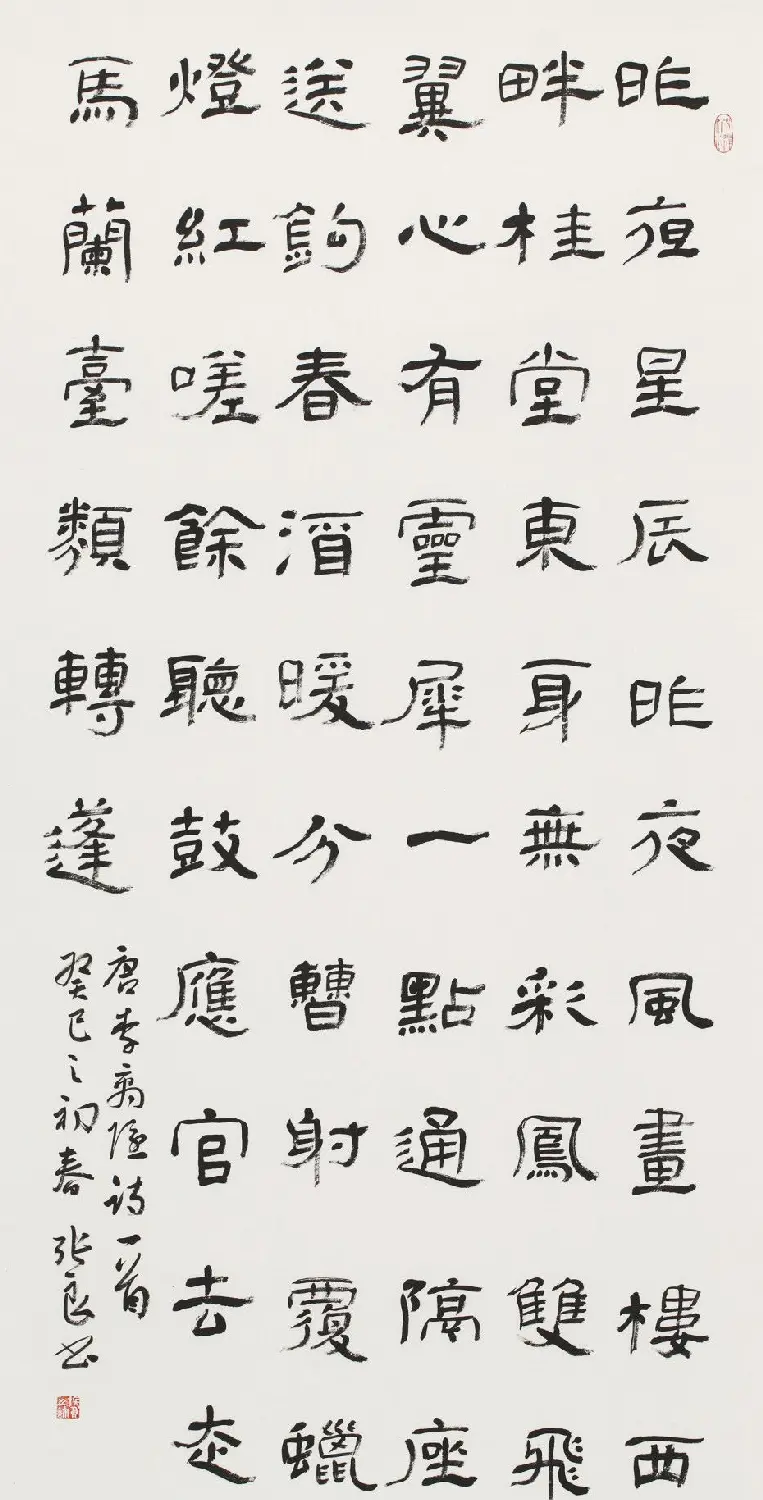 昨夜星辰昨夜風畫樓西
畔桂堂東身無彩鳳雙飛
翼心有靈犀一點通隔座
送鉤春酒暖分曹射覆蠟
燈紅嗟餘聽鼓應官去走
馬蘭臺類轉蓬
唐李商隱詩一首
癸巳之初春 張良书